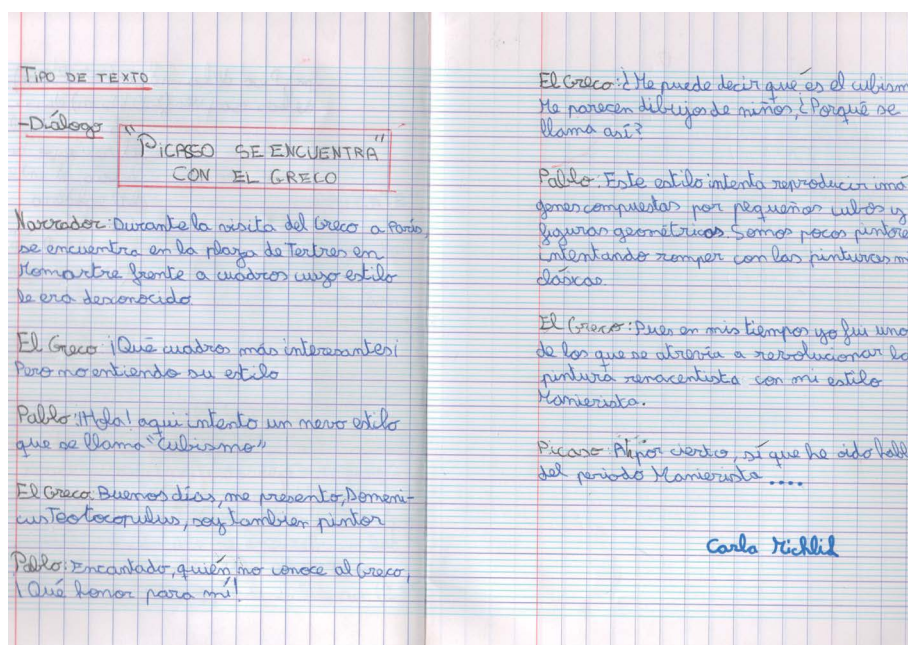 TIPO DE TEXTO
-Diálogo
"PICASSO SE ENCUENTRA"
CON EL GRECO
Narrador: Durante la visita del Greco a París,
se encuentra en la plaza de Tertres en
Momartre frente a cuadros cuyo estilo
le era desconocido
El Greco: ¡Qué cuadros más interesantes¡
Pero no entiendo su estilo
Pablo: ¡Hola! aqui intento un nuevo estilo
que se llama "Cubismo"
El Greco: Buenos días, me presento, Domeni-
cus Teotocopulus, soy tambien pintor
Pablo: Encantado, quién no conoce al Greco,
¡Qué honor para mí!
El Greco: ¿Me puede decir qué es el cubism
Me parecen dibujos de niños, ¿Porqué se
llama así?
Pablo: Este estilo intenta reproducir imá
genes compuestas por pequeños cubos y
figuras geométricas. Somos pocos pintore
intentando romper con las pinturas m
clásicas.
El Greco: Pues en mis tiempos yo fui uno
de los que se atrevía a revolucionar la
pintura renacentista con mi estilo
Manierista.
Picaso: Ah por cierto, sí que he oido habl
del periodo Manierista ....
Carla Michlih